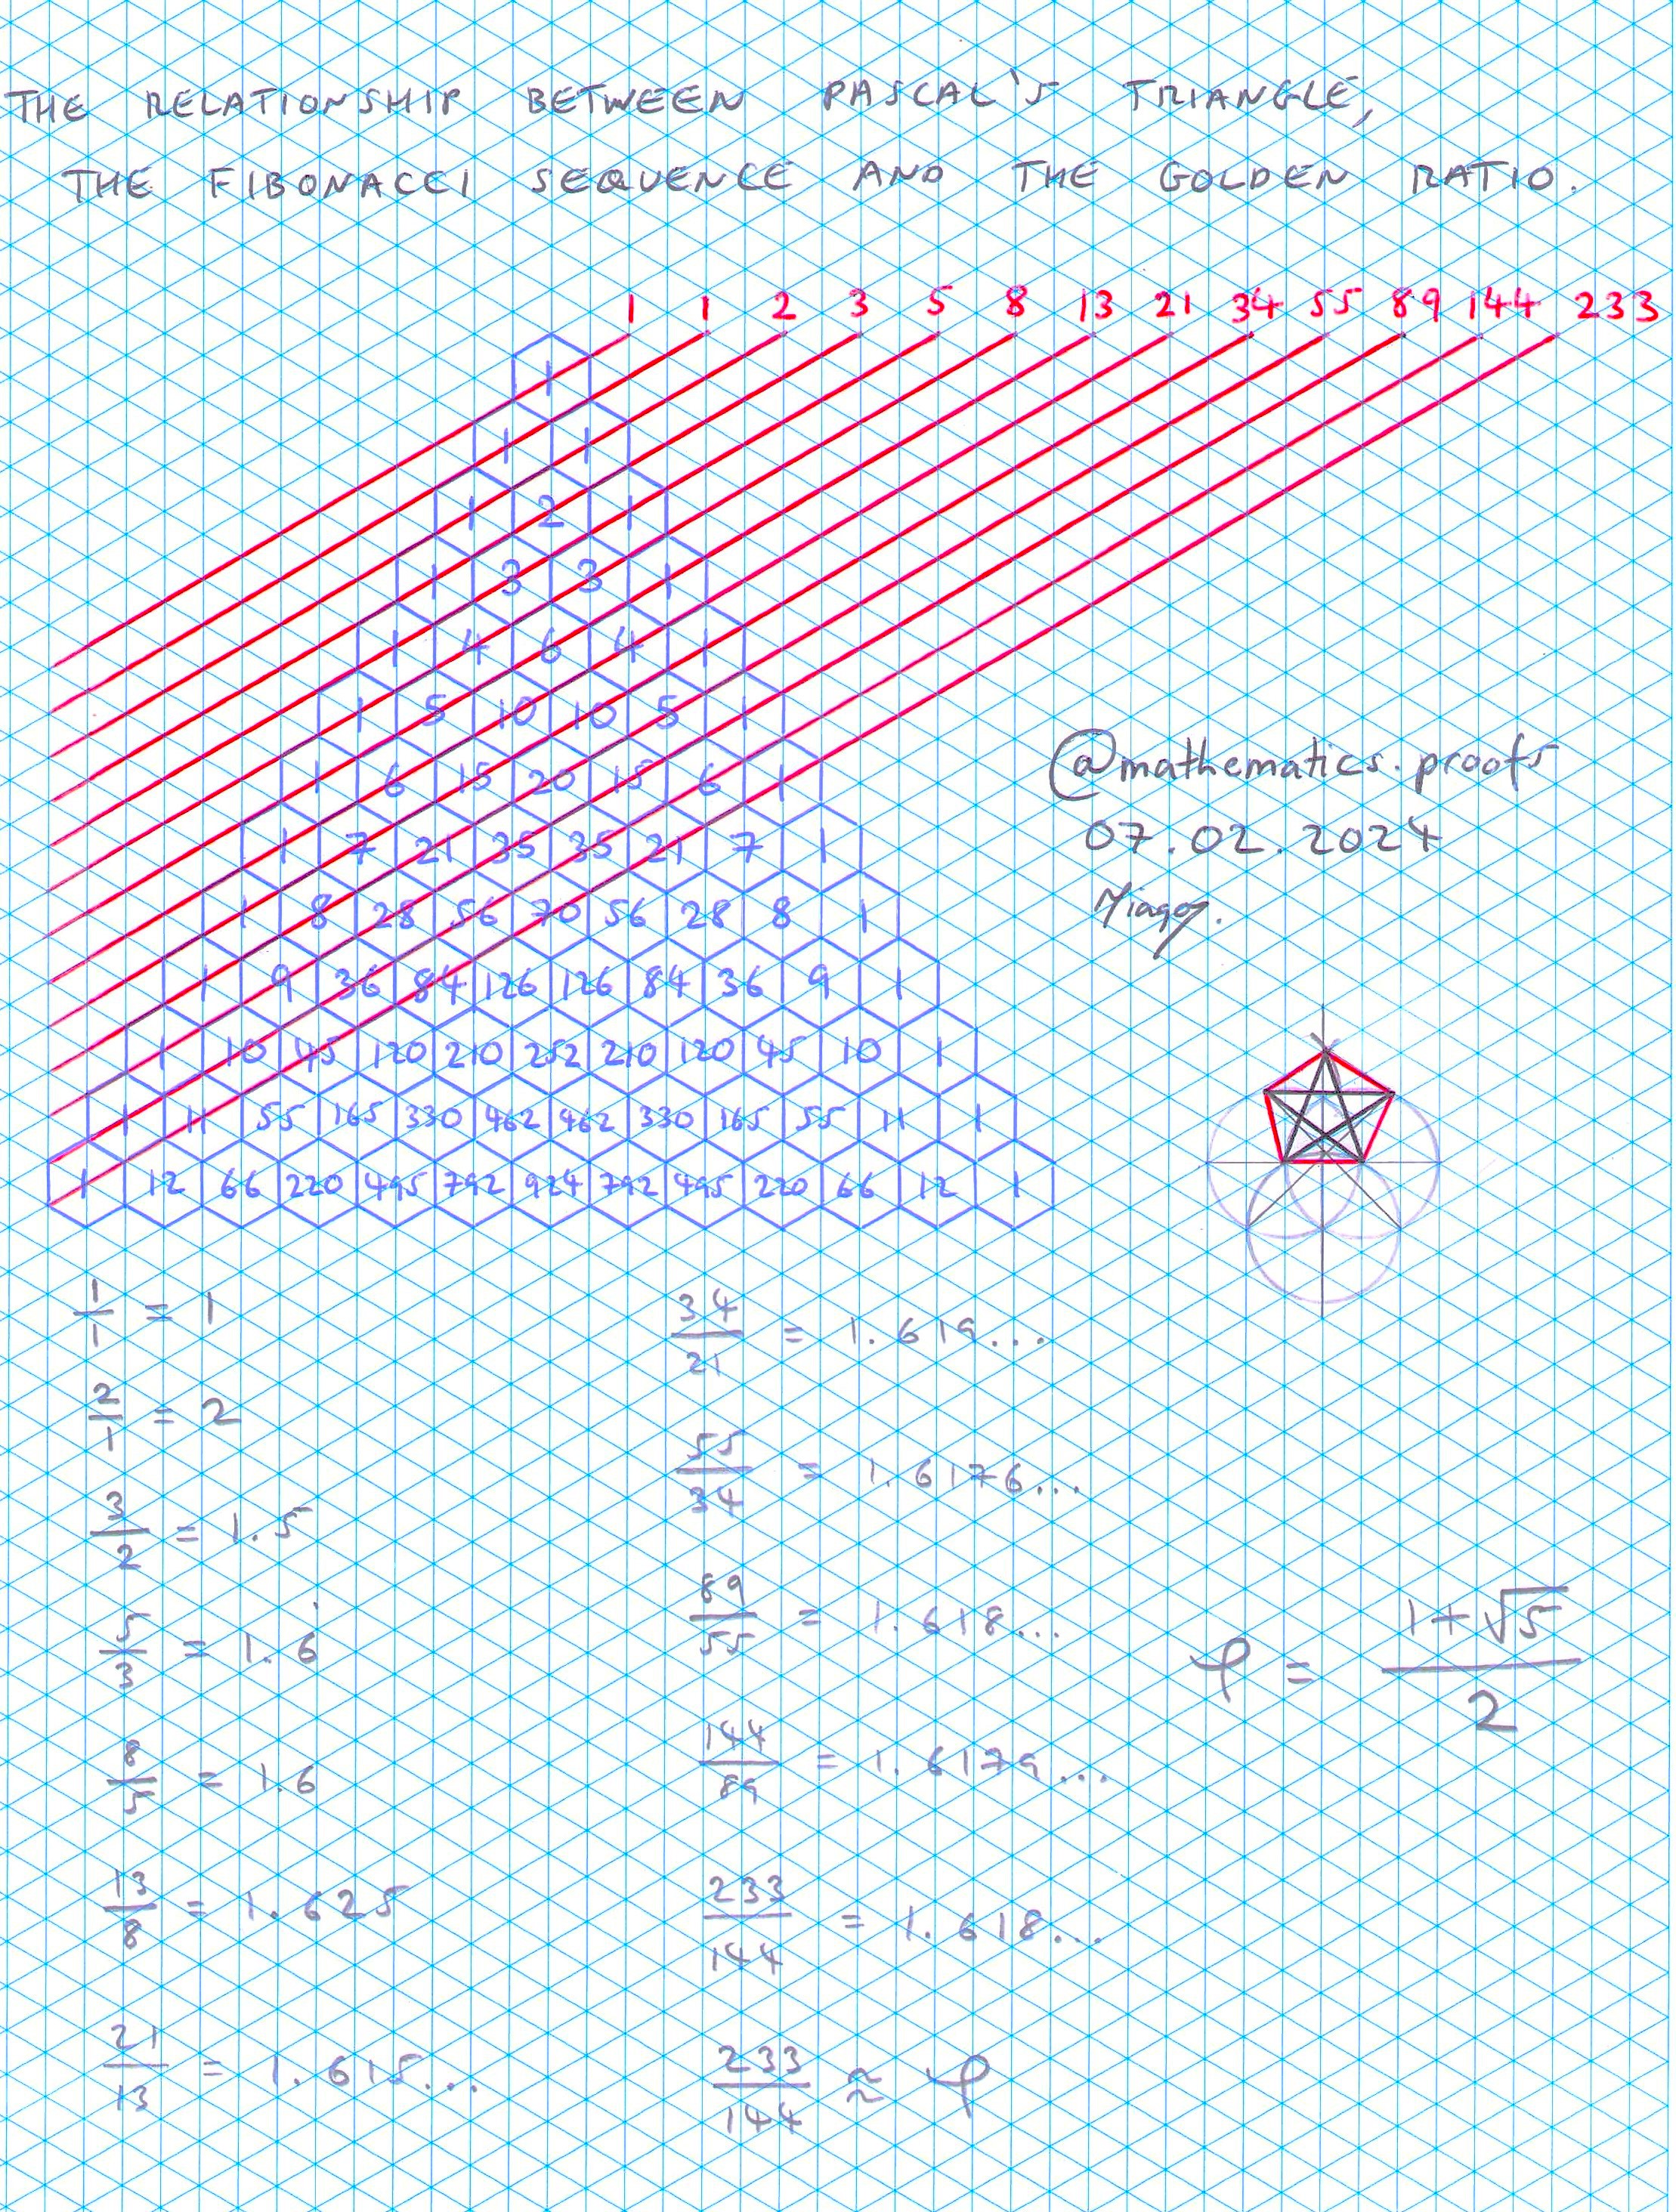 THE RELATIONSHIP BETWEEN PASCAL'S TRIANGLE,
THE FIBONACCI SEQUENCE AND THE GOLDEN RATIO.
1 1 2 3 5 8 13 21 34 55 89 144 233
1
1 1
1 2 1
1 3 3 1
1 4 6 4 1
1 5 10 10 5 1
1 6 15 20 15 6 1
1 7 21 35 35 21 7 1
1 8 28 56 70 56 28 8 1
1 9 36 84 126 126 84 36 9 1
1 10 45 120 210 252 210 120 45 10 1
1 11 55 165 330 462 462 330 165 55 11 1
1 12 66 220 495 792 924 792 495 220 66 12 1
@mathematics.proofs
07.02.2024
1/1 = 1
2/1 = 2
3/2 = 1.5
5/3 = 1.6̇
8/5 = 1.6
13/8 = 1.625
21/13 = 1.615...
34/21 = 1.619...
55/34 = 1.6176...
89/55 = 1.618...
144/89 = 1.6179...
233/144 = 1.618...
233/144 ≈ φ
φ = (1+√5)/2